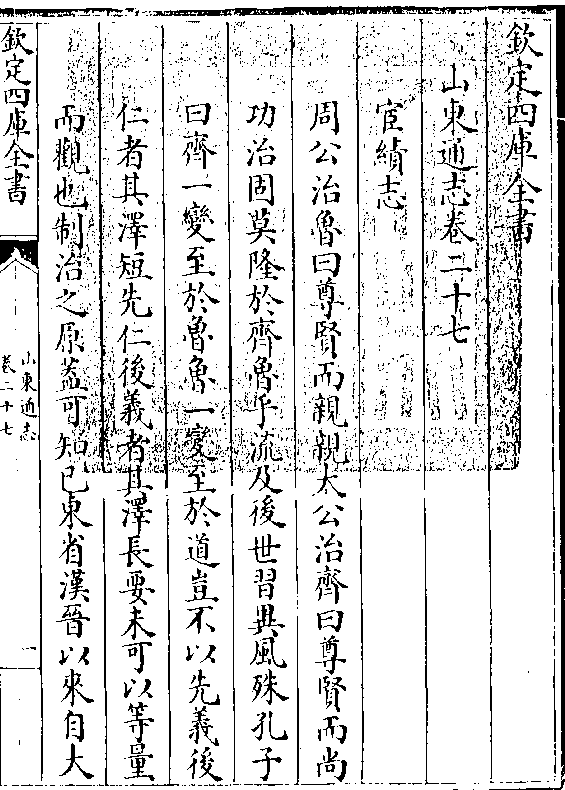 欽定四庫全書
山東通志卷二十七
宦績志
周公治魯曰尊賢而親親太公治齊曰尊賢而尚
功治固莫隆於齊魯乎流及後世習異風殊孔子
曰齊一變至於魯魯一變至於道豈不以先義後
仁者其澤短先仁後義者其澤長要未可以等量
而觀也制治之原蓋可知已東省漢晉以來自大
欽定四庫全書
山東通志
卷二十七
一